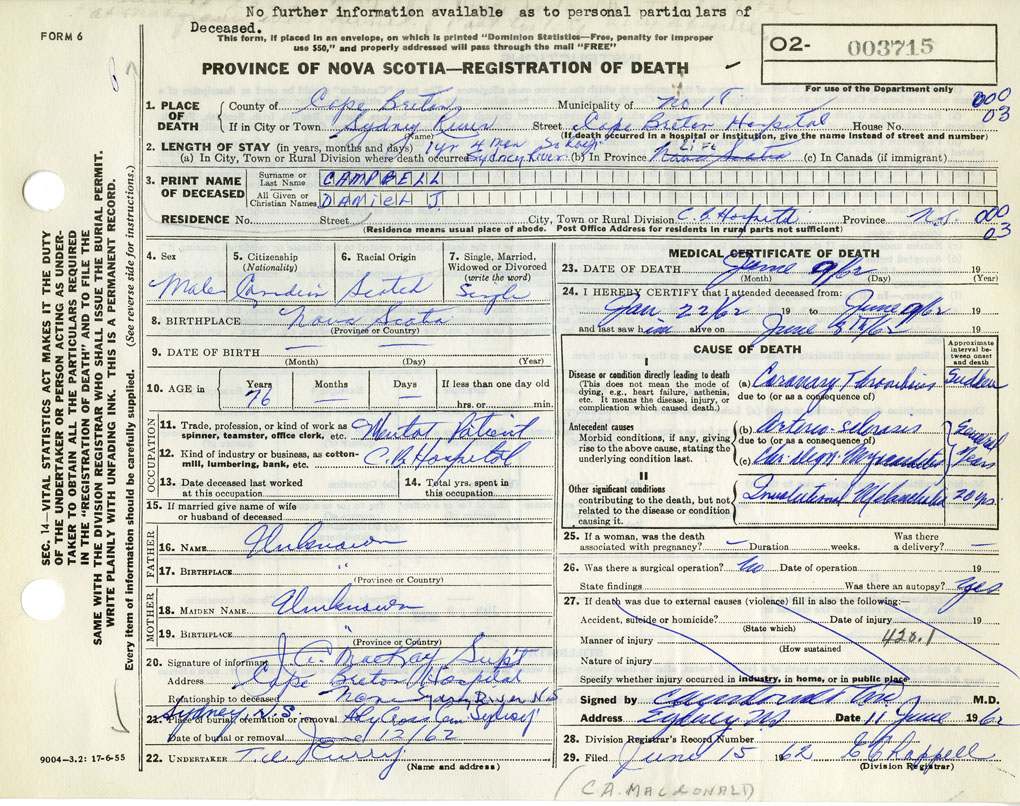 No further information available as to personal particulars of
Deceased.
FORM 6
This form, if placed in an envelope, on which is printed "Dominion Statistics—Free, penalty for improper
use $50," and properly addressed will pass through the mail "FREE"
O2- 003715
PROVINCE OF NOVA SCOTIA—REGISTRATION OF DEATH
For use of the Department only
1. PLACE OF DEATH
County of Cape Breton Municipality of
If in City or Town Sydney River Street Cape Breton Hospital House No.
(Name) (If death occurred in a hospital or institution, give the name instead of street and number)
000
03
2. LENGTH OF STAY (in years, months and days) 1 yr 4 Mon
(a) In City, Town or Rural Division where death occurred Sydney River (b) In Province Life Nova Scotia (c) In Canada (if immigrant)
3. PRINT NAME OF DECEASED
Surname or Last Name CAMPBELL
All Given or Christian Names J.
RESIDENCE No. Street City, Town or Rural Division C.B. Hospital Province N.S.
(Residence means usual place of abode. Post Office Address for residents in rural parts not sufficient)
000
03
4. Sex
Male
5. Citizenship
(Nationality)
6. Racial Origin
7. Single, Married,
Widowed or Divorced
(write the word)
Single
8. BIRTHPLACE Nova Scotia
(Province or Country)
9. DATE OF BIRTH
(Month) (Day) (Year)
10. AGE in Years Months Days If less than one day old
76 — — hrs. or min.
OCCUPATION
11. Trade, profession, or kind of work as
spinner, teamster, office clerk, etc. Mental Patient
12. Kind of industry or business, as cotton-
mill, lumbering, bank, etc. C.B. Hospital
13. Date deceased last worked
at this occupation
14. Total yrs. spent in
this occupation
15. If married give name of wife
or husband of deceased
FATHER
16. NAME Unknown
17. BIRTHPLACE "
(Province or Country)
MOTHER
18. MAIDEN NAME Unknown
19. BIRTHPLACE "
(Province or Country)
20. Signature of informant J. A. MacKay Supt
Address Cape Breton Hospital
Relationship to deceased None Sydney River N.S
Sydney, N.S.
21. Place of burial, cremation or removal Holy Cross Cem Sydney
Date of burial or removal June 12/62
22. UNDERTAKER T. W. Curry
(Name and address)
9004—3.2: 17-6-55
SEC. 14—VITAL STATISTICS ACT MAKES IT THE DUTY
OF THE UNDERTAKER OR PERSON ACTING AS UNDER-
TAKER TO OBTAIN ALL THE PARTICULARS REQUIRED
IN THE "REGISTRATION OF DEATH" AND TO FILE THE
SAME WITH THE DIVISION REGISTRAR WHO SHALL ISSUE THE BURIAL PERMIT.
WRITE PLAINLY WITH UNFADING INK. THIS IS A PERMANENT RECORD.
Every item of information should be carefully supplied. (See reverse side for instructions.)
MEDICAL CERTIFICATE OF DEATH
23. DATE OF DEATH June 9/62 19
(Month) (Day) (Year)
24. I HEREBY CERTIFY that I attended deceased from:
Jan 22/62 19 to June 9/62 19
and last saw him alive on June 19
CAUSE OF DEATH
Approximate
interval be-
tween onset
and death
I
Disease or condition directly leading to death
(This does not mean the mode of
dying, e.g., heart failure, asthenia,
etc. It means the disease, injury, or
complication which caused death.)
(a) Coronary Thrombosis Sudden
due to (or as a consequence of)
Antecedent causes
Morbid conditions, if any, giving
rise to the above cause, stating the
underlying condition last.
(b) Arterio-sclerosis
due to (or as a consequence of)
(c) Several Years
II
Other significant conditions
contributing to the death, but not
related to the disease or condition
causing it.
Involutional Melancholia 20 yrs.
25. If a woman, was the death
associated with pregnancy? — Duration weeks. Was there
a delivery? —
26. Was there a surgical operation? No Date of operation 19
State findings Was there an autopsy? Yes
27. If death was due to external causes (violence) fill in also the following:—
Accident, suicide or homicide? Date of injury 19
(State which)
Manner of injury 420.1
(How sustained
Nature of injury
Specify whether injury occurred in industry, in home, or in public place
Signed by M.D.
Address Sydney NS Date 11 June 1962
28. Division Registrar's Record Number
29. Filed June 15 1962 Chappell
(Division Registrar)
(C.A. MACDONALD)